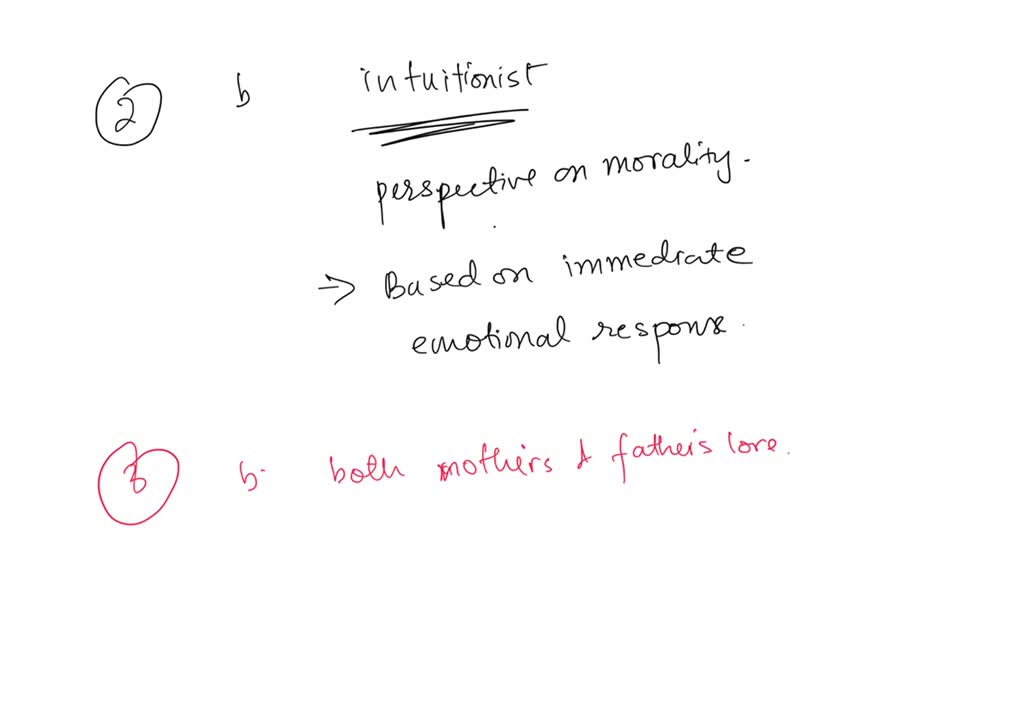 2 b intuitionist
perspective on morality.
→ Based on immediate
emotional response.
3 b. both mother's & father's love.